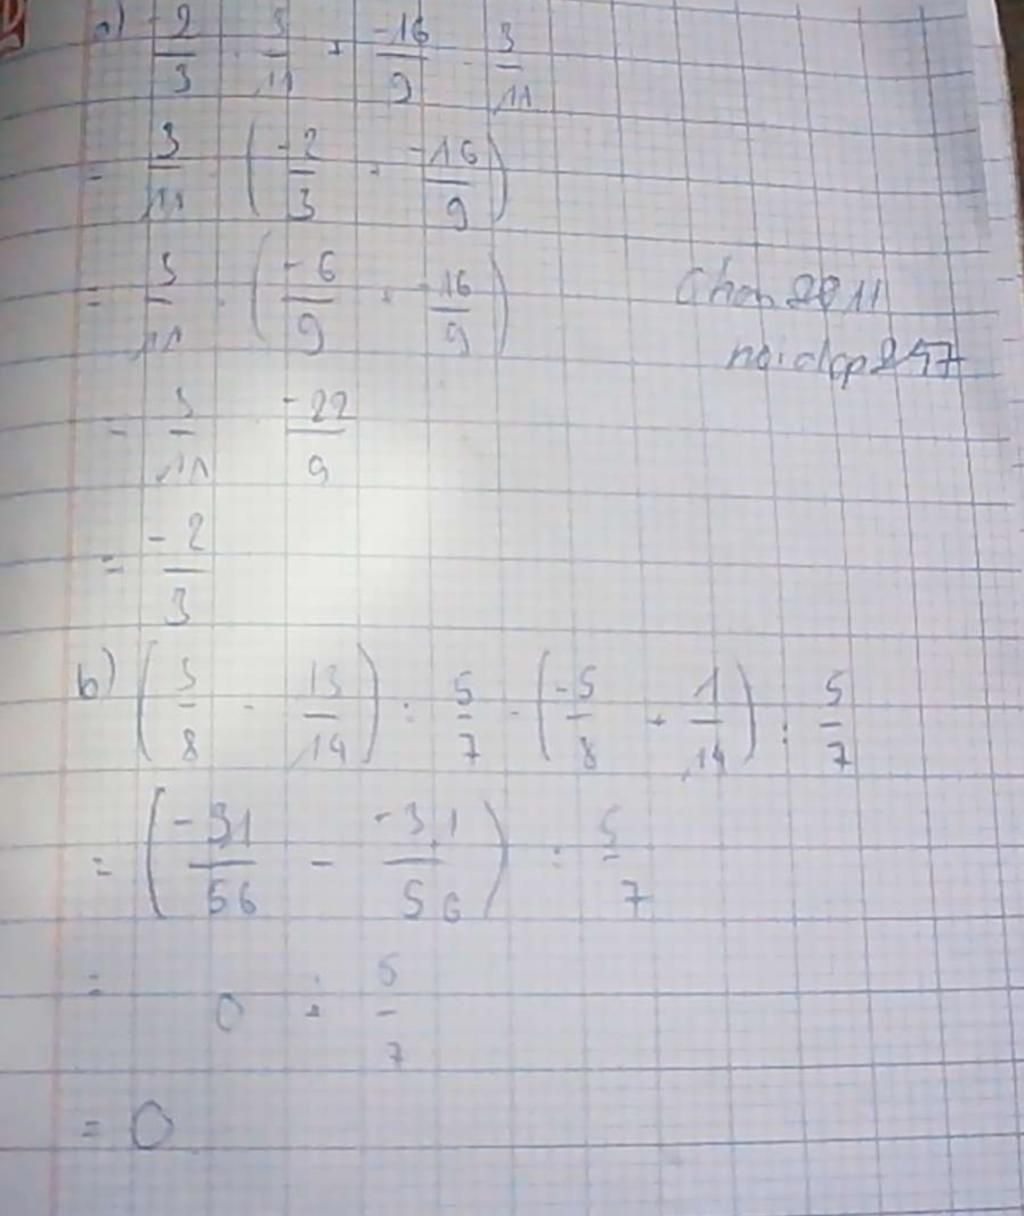 a) -2/3 . 3/11 + -16/9 . 3/11
= 3/11 . (-2/3 + -16/9)
= 3/11 . (-6/9 + -16/9)
Chan 2011
noidap247
= 3/11 . -22/9
= -2/3
b) (3/8 - 13/14) : 5/7 - (-5/8 + 1/14) : 5/7
= (-31/56 - -31/56) : 5/7
= 0 : 5/7
= 0